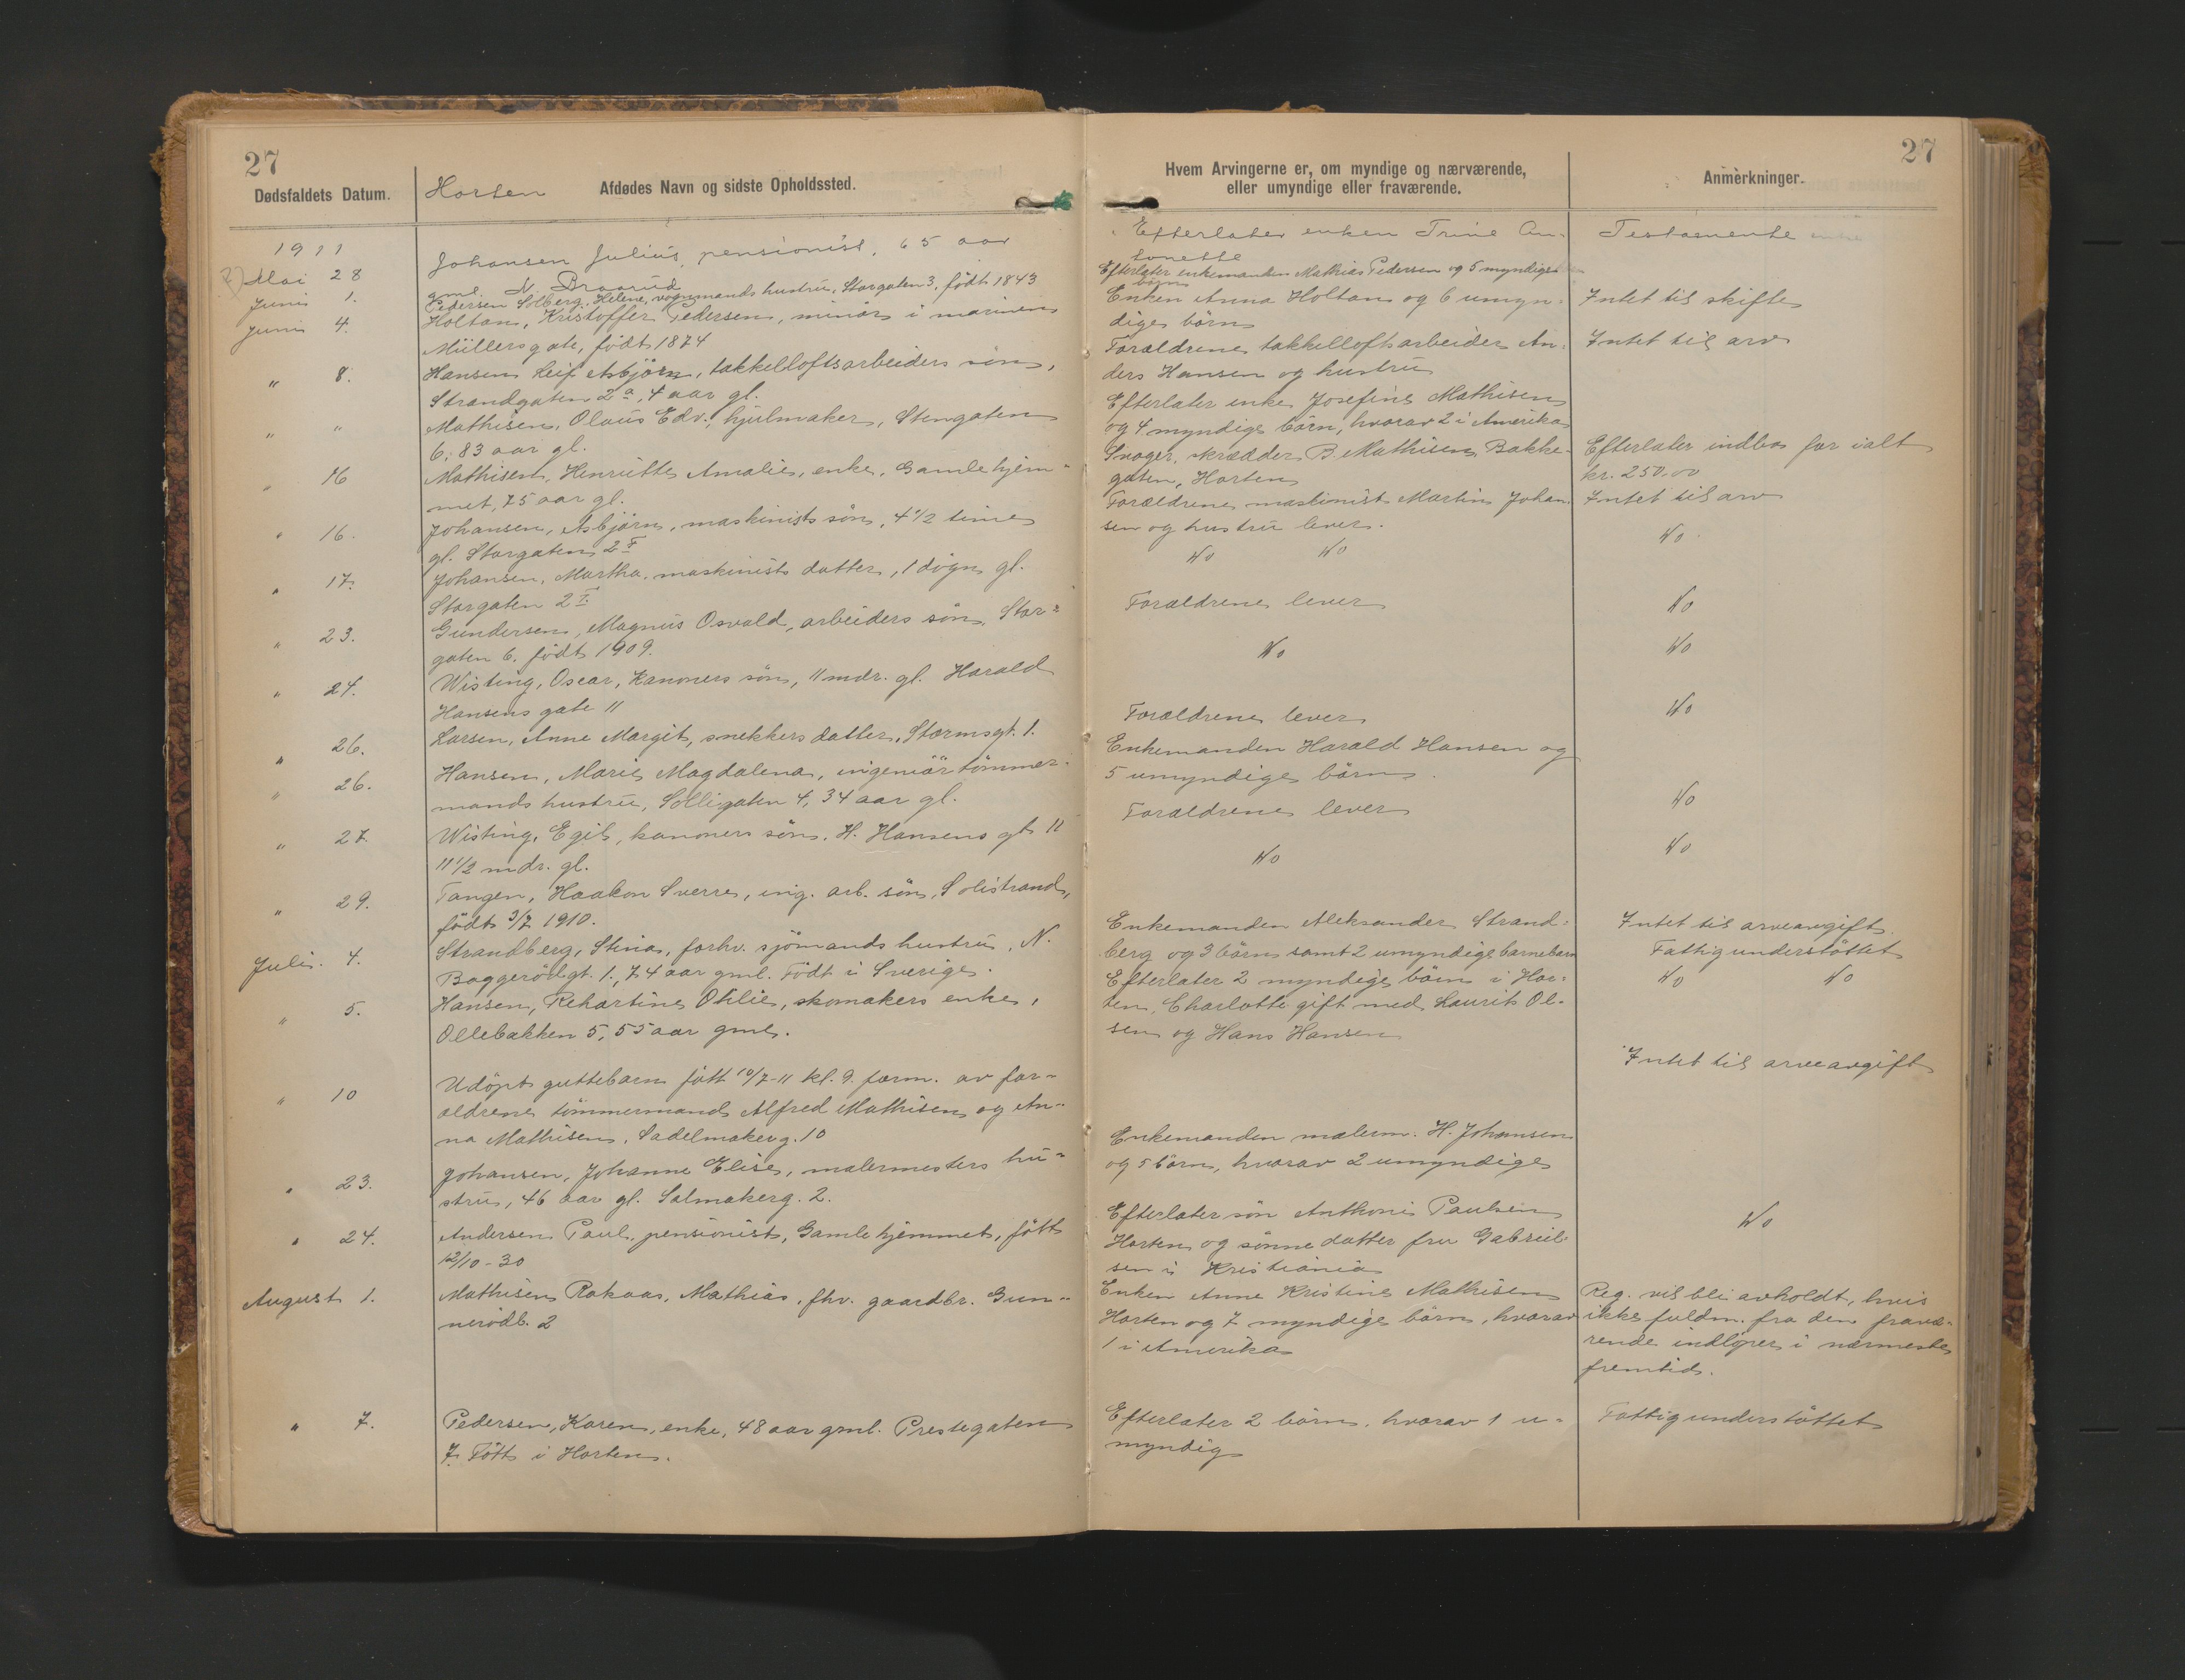 27
Dødsfaldets Datum.
Horten
Afdødes Navn og sidste Opholdssted.
1911
Mai 28
Johansen Julius, pensionist, 65 aar
gml. N. Braarud
Juni 1.
Pedersen Solberg, Helene, vognmands hustru, Storgaten 3, født 1843
Juni 4.
Holtan, Kristoffer Pedersen, minör i marinen
Müllersgate, født 1874
" 8.
Hansen Leif Asbjörn, takkelloftsarbeiders sön,
Strandgaten 2a, 4 aar gl.
" "
Mathisen, Olaus Edv., hjulmaker, Stengaten
6, 83 aar gl.
" 16
Mathisen, Henriette Amalie, enke, Gamlehjem-
met, 75 aar gl.
" 16.
Johansen, Asbjörn, maskinists sön, 4 1/2 time
gl. Storgaten 2
" 17.
Johansen, Martha, maskinists datter, 1 dögn gl.
Storgaten 2
" 23.
Gundersen, Magnus Osvald, arbeiders sön, Stor-
gaten 6. født 1909.
" 24.
Wisting, Oscar, Kanoners sön, 11 mdr. gl. Harald
Hansens gate 11
" 26.
Larsen, Anne Margit, snekkers datter, Stormsgt. 1.
" 26.
Hansen, Marie Magdalena, ingeniörtömmer-
mands hustru, Solligaten 4, 34 aar gl.
" 27.
Wisting, Egil, kanoners sön. H. Hansens gt 11
11 1/2 mdr. gl.
" 29.
Tangen, Haakon Sverre, ing. arb. sön, Solistrand,
født 3/7 1910.
Juli. 4.
Strandberg, Stina, forhv. sjömands hustru, N.
Baggerödgt. 1, 74 aar gml. Födt i Sverige.
" 5.
Hansen, Rekartine Otilie, skomakers enke,
Ollebakken 5, 55 aar gml.
" 10
Udöpt guttebarn fött 10/7-11 kl. 9 form. av for-
ældrene tömmermand Alfred Mathisen og An-
na Mathisen, Sadelmakerg. 10
" 23.
Johansen, Johanne Elise, malermesters hu-
stru, 46 aar gl. Salmakerg. 2.
" 24.
Andersen Paul, pensionist, Gamlehjemmet, fött
12/10-30
August 1.
Mathisen Rakaas, Mathias, fhv. gaardbr. Gun-
nerödb. 2
" 7.
Pedersen, Karen, enke, 48 aar gml. Prestegaten
7. Fött i Horten.
27
Hvem Arvingerne er, om myndige og nærværende,
eller umyndige eller fraværende.
Anmerkninger.
Efterlater enken Trine An-
tonette
Testamente
Efterlater enkemanden Mathias Pedersen og 5 myndige
börn
Enken Anna Holtan og 6 umyn-
dige börn
Intet til skifte
Forældrene takkelloftsarbeider An-
ders Hansen og hustru
Intet til arv
Efterlater enke Josefine Mathisen
og 4 myndige börn, hvorav 2 i Amerika
Svoger, skrædder B. Mathisen, Bakke-
gaten, Horten
Efterlater indbo for ialt
kr. 250.00
Forældrene maskinist Martin Johan-
sen og hustru lever.
Intet til arv
do do
do
Forældrene lever
do
do
do
Forældrene lever
do
Enkemanden Harald Hansen og
5 umyndige börn.
Forældrene lever
do
do
do
Enkemanden Aleksander Strand-
berg og 3 börn samt 2 umyndige barnebarn
Intet til arveavgift.
Fattigunderstöttet
Efterlater 2 myndige börn i Hor-
ten, Charlotte gift med Laurits Ol-
sen og Hans Hansen
do do
Intet til arveavgift
Enkemanden malerm. H. Johansen
og 5 börn, hvorav 2 umyndige
Efterlater sön Anthoni Paulsen
Horten og sönnedatter fru Gabriel-
sen i Kristiania
do
Enken Anne Kristine Mathisen
Horten og 7 myndige börn, hvorav
1 i Amerika
Reg. vil bli avholdt, hvis
ikke fuldm. fra den fravæ-
rende indlöper i nærmeste
fremtid.
Efterlater 2 börn, hvorav 1 u-
myndig
Fattigunderstöttet